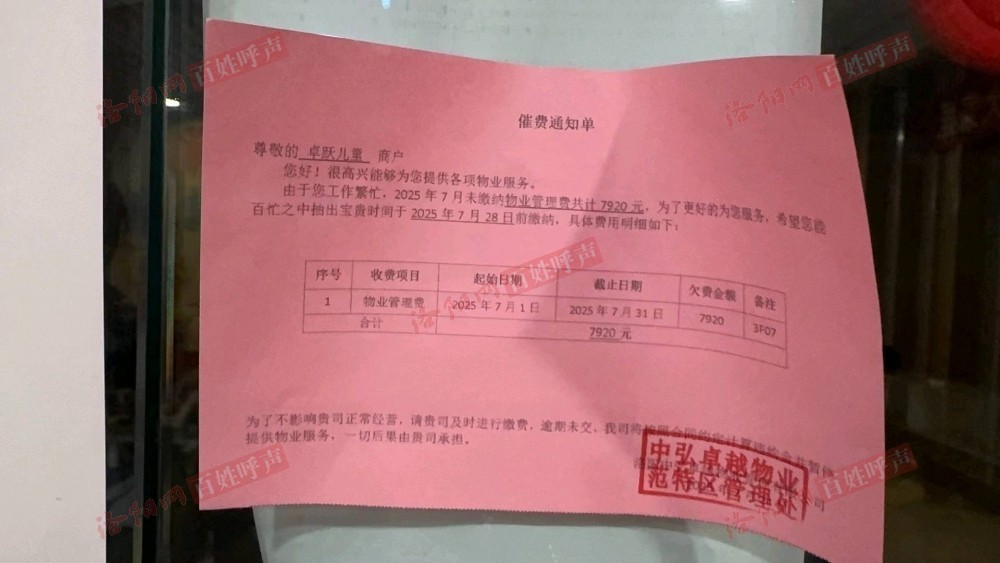 催费通知单
尊敬的 卓跃儿童 商户
您好！很高兴能够为您提供各项物业服务。
由于您工作繁忙，2025 年 7 月未缴纳物业管理费共计 7920 元，为了更好的为您服务，希望您能
百忙之中抽出宝贵时间于 2025 年 7 月 28 日前缴纳，具体费用明细如下：
序号 收费项目 起始日期 截止日期 欠费金额 备注
1 物业管理费 2025 年 7 月 1 日 2025 年 7 月 31 日 7920 3F07
合计 7920 元
为了不影响贵司正常经营，请贵司及时进行缴费，逾期未交，我司将按照合同约定计算违约金并暂停
提供物业服务，一切后果由贵司承担。
公司
中弘卓越物业
范特区管理处
洛阳网 百姓呼声
洛阳网 百姓呼声
洛阳网 百姓呼声
洛阳网 百姓呼声
洛阳网 百姓呼声